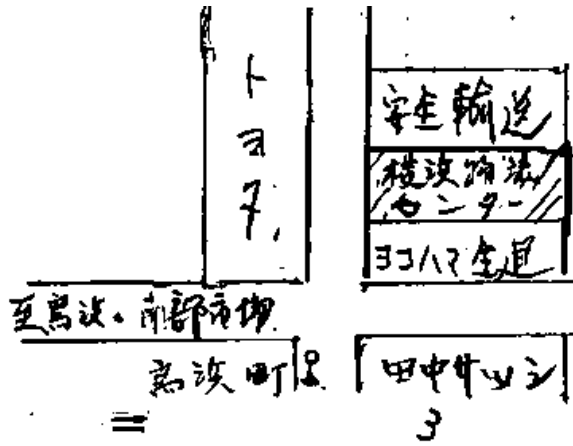 トヨタ
安全輸送
横浜物流
センター
ヨコハマ
至鳥浜。南部市場
鳥浜町
田中サッシ